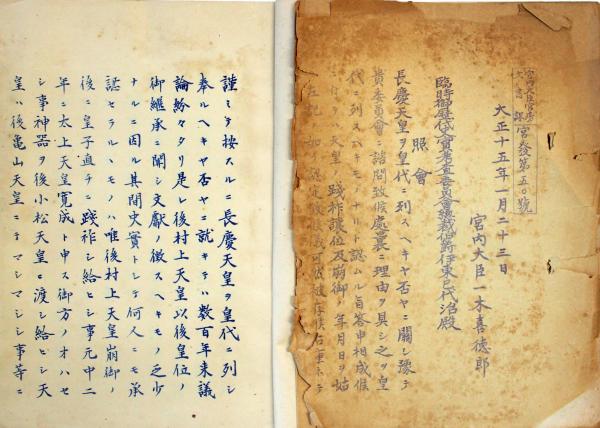 宮内大臣官房
文書課
宮發第五〇號
大正十五年一月二十三日
宮内大臣一木喜徳郎
臨時御歴代史實考査委員會總裁伯爵伊東巳代治殿
照會
長慶天皇ヲ皇代ニ列スヘキヤ否ヤニ關シ豫テ
貴委員會ニ諮問致候處裏ニ理由ヲ具シ之ヲ皇
代ニ列スヘキモノナルト認ムル旨答申相成候
天皇ノ践祚讓位及崩御ノ年月日ヲ姑
謹ミテ按スルニ長慶天皇ヲ皇代ニ列シ
奉ルヘキヤ否ヤニ就キテハ数百年来議
論紛々タリ是レ後村上天皇以後皇位ノ
御継承ニ関シ文献ノ徴スヘキモノ乏少
ナルニ因ル其間史實トシテ何人ニモ承
認セラルヽモノハ唯後村上天皇崩御ノ
後ニ皇子直チニ践祚シ給ヒシ事元中二
年ニ太上天皇寛成ト申ス御方ノオハセ
シ事神器ヲ後小松天皇ニ渡シ給ヒシ天
皇ハ後亀山天皇ニテマシマシシ事等ニ